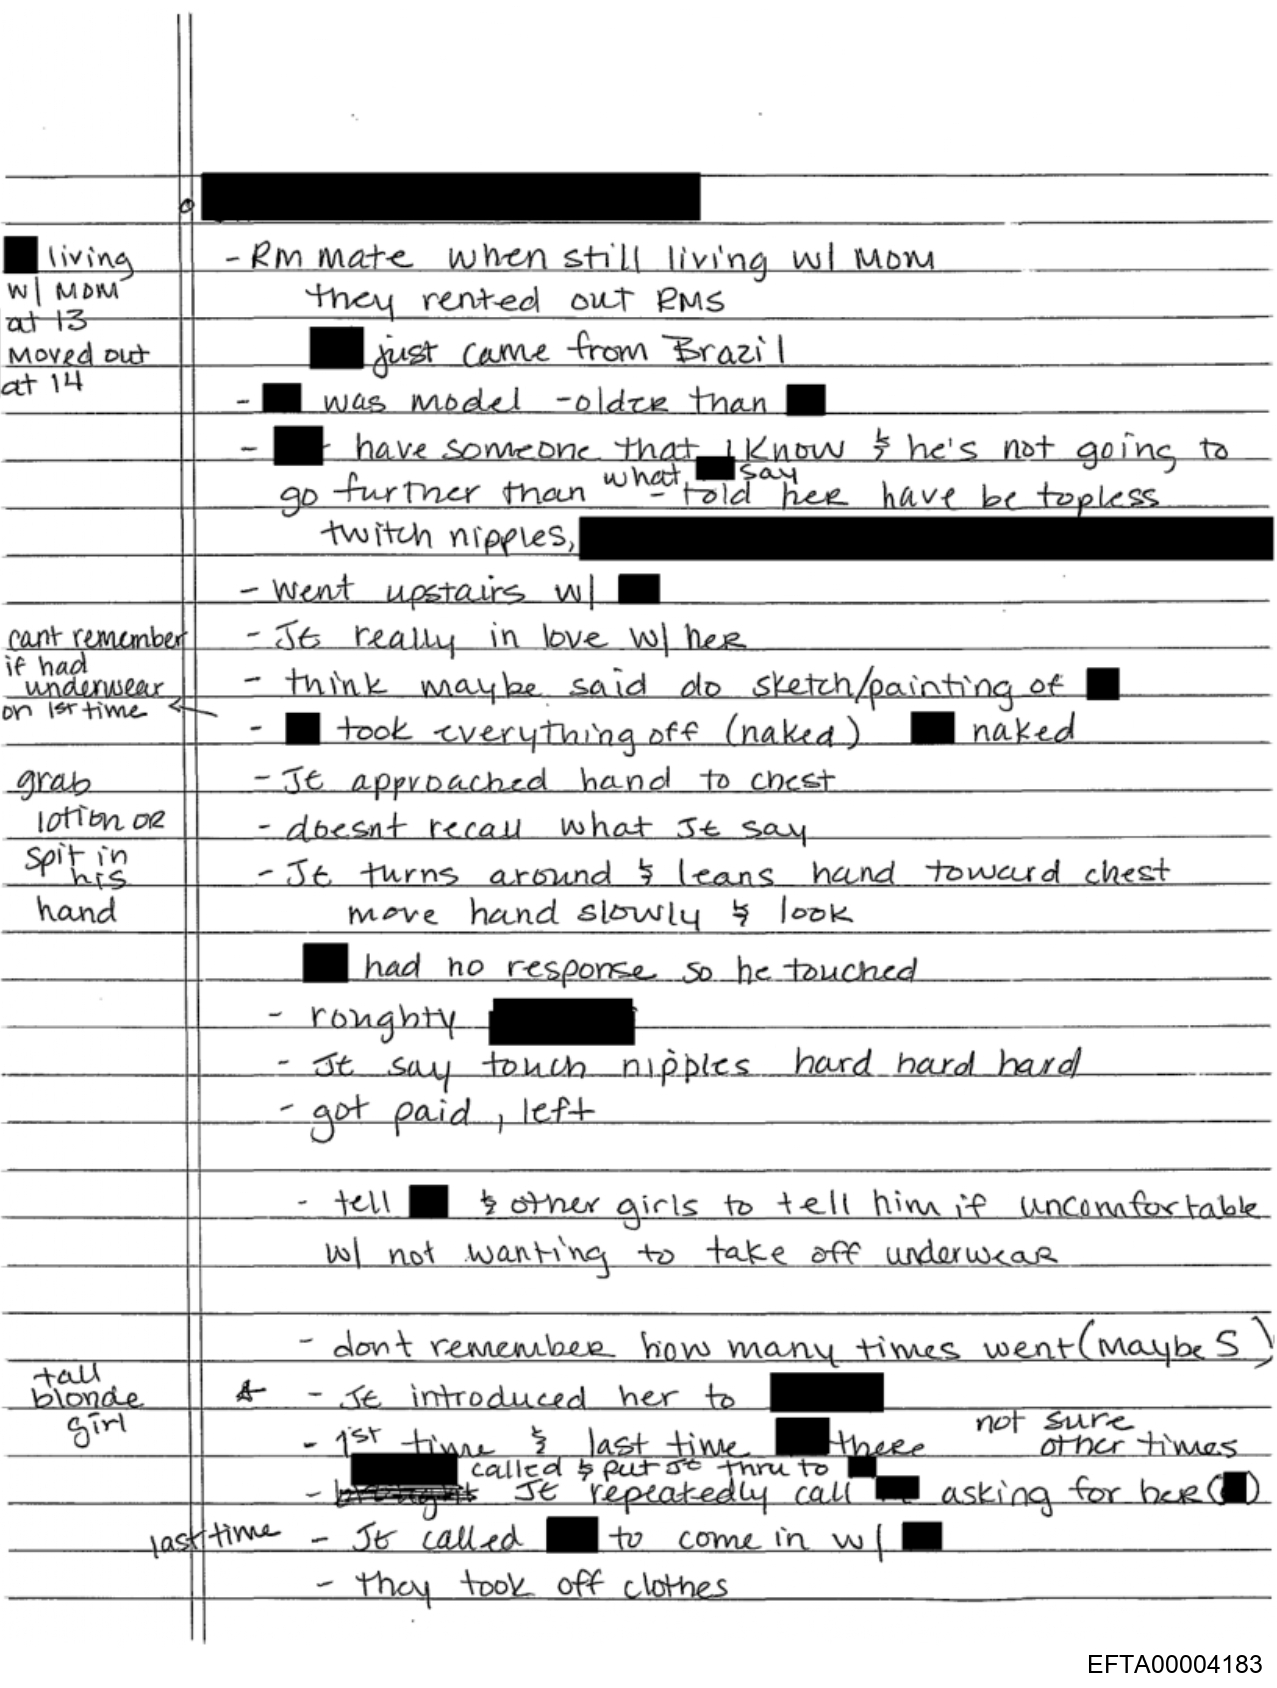 living
w/ MOM
at 13
Moved out
at 14
- RM mate when still living w/ MOM
they rented out RMS
just came from Brazil
- was model - older than
- have someone that I know & he's not going to
what say
go further than - told her have be topless
twitch nipples,
- went upstairs w/
cant remember
if had
underwear
on 1st time
- JE really in love w/ her
- think maybe said do sketch/painting of
- took everything off (naked) naked
grab
lotion or
spit in
his
hand
- JE approached hand to chest
- doesnt recall what JE say
- JE turns around & leans hand toward chest
move hand slowly & look
had no response so he touched
- roughty
- JE say touch nipples hard hard hard
- got paid, left
- tell & other girls to tell him if uncomfortable
w/ not wanting to take off underwear
- dont remember how many times went (maybe 5)
tall
blonde
girl
- JE introduced her to
not sure
- 1st time & last time there other times
called & put JE thru to
- JE repeatedly call asking for her ( )
last time - JE called to come in w/
- they took off clothes
EFTA00004183